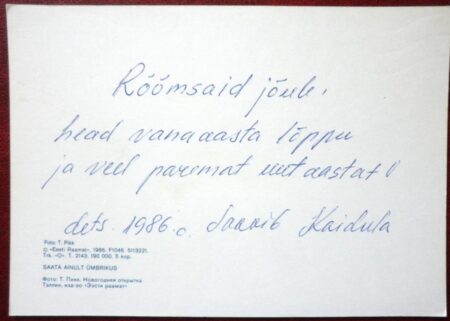 Rõõmsaid jõule,
head vanaaasta lõppu
ja veel paremat uutaastat!
dets. 1986.a. Soovib Kaidula
Foto: T. Piss
© «Eesti Raamat», 1986. F1046. Sl13221.
Trk. «O». T. 2143. 190 000. 5 kop.
SAATA AINULT ÜMBRIKUS
Фото: Т. Новогодняя открытка
Таллин, изд-во «Ээсти раамат»